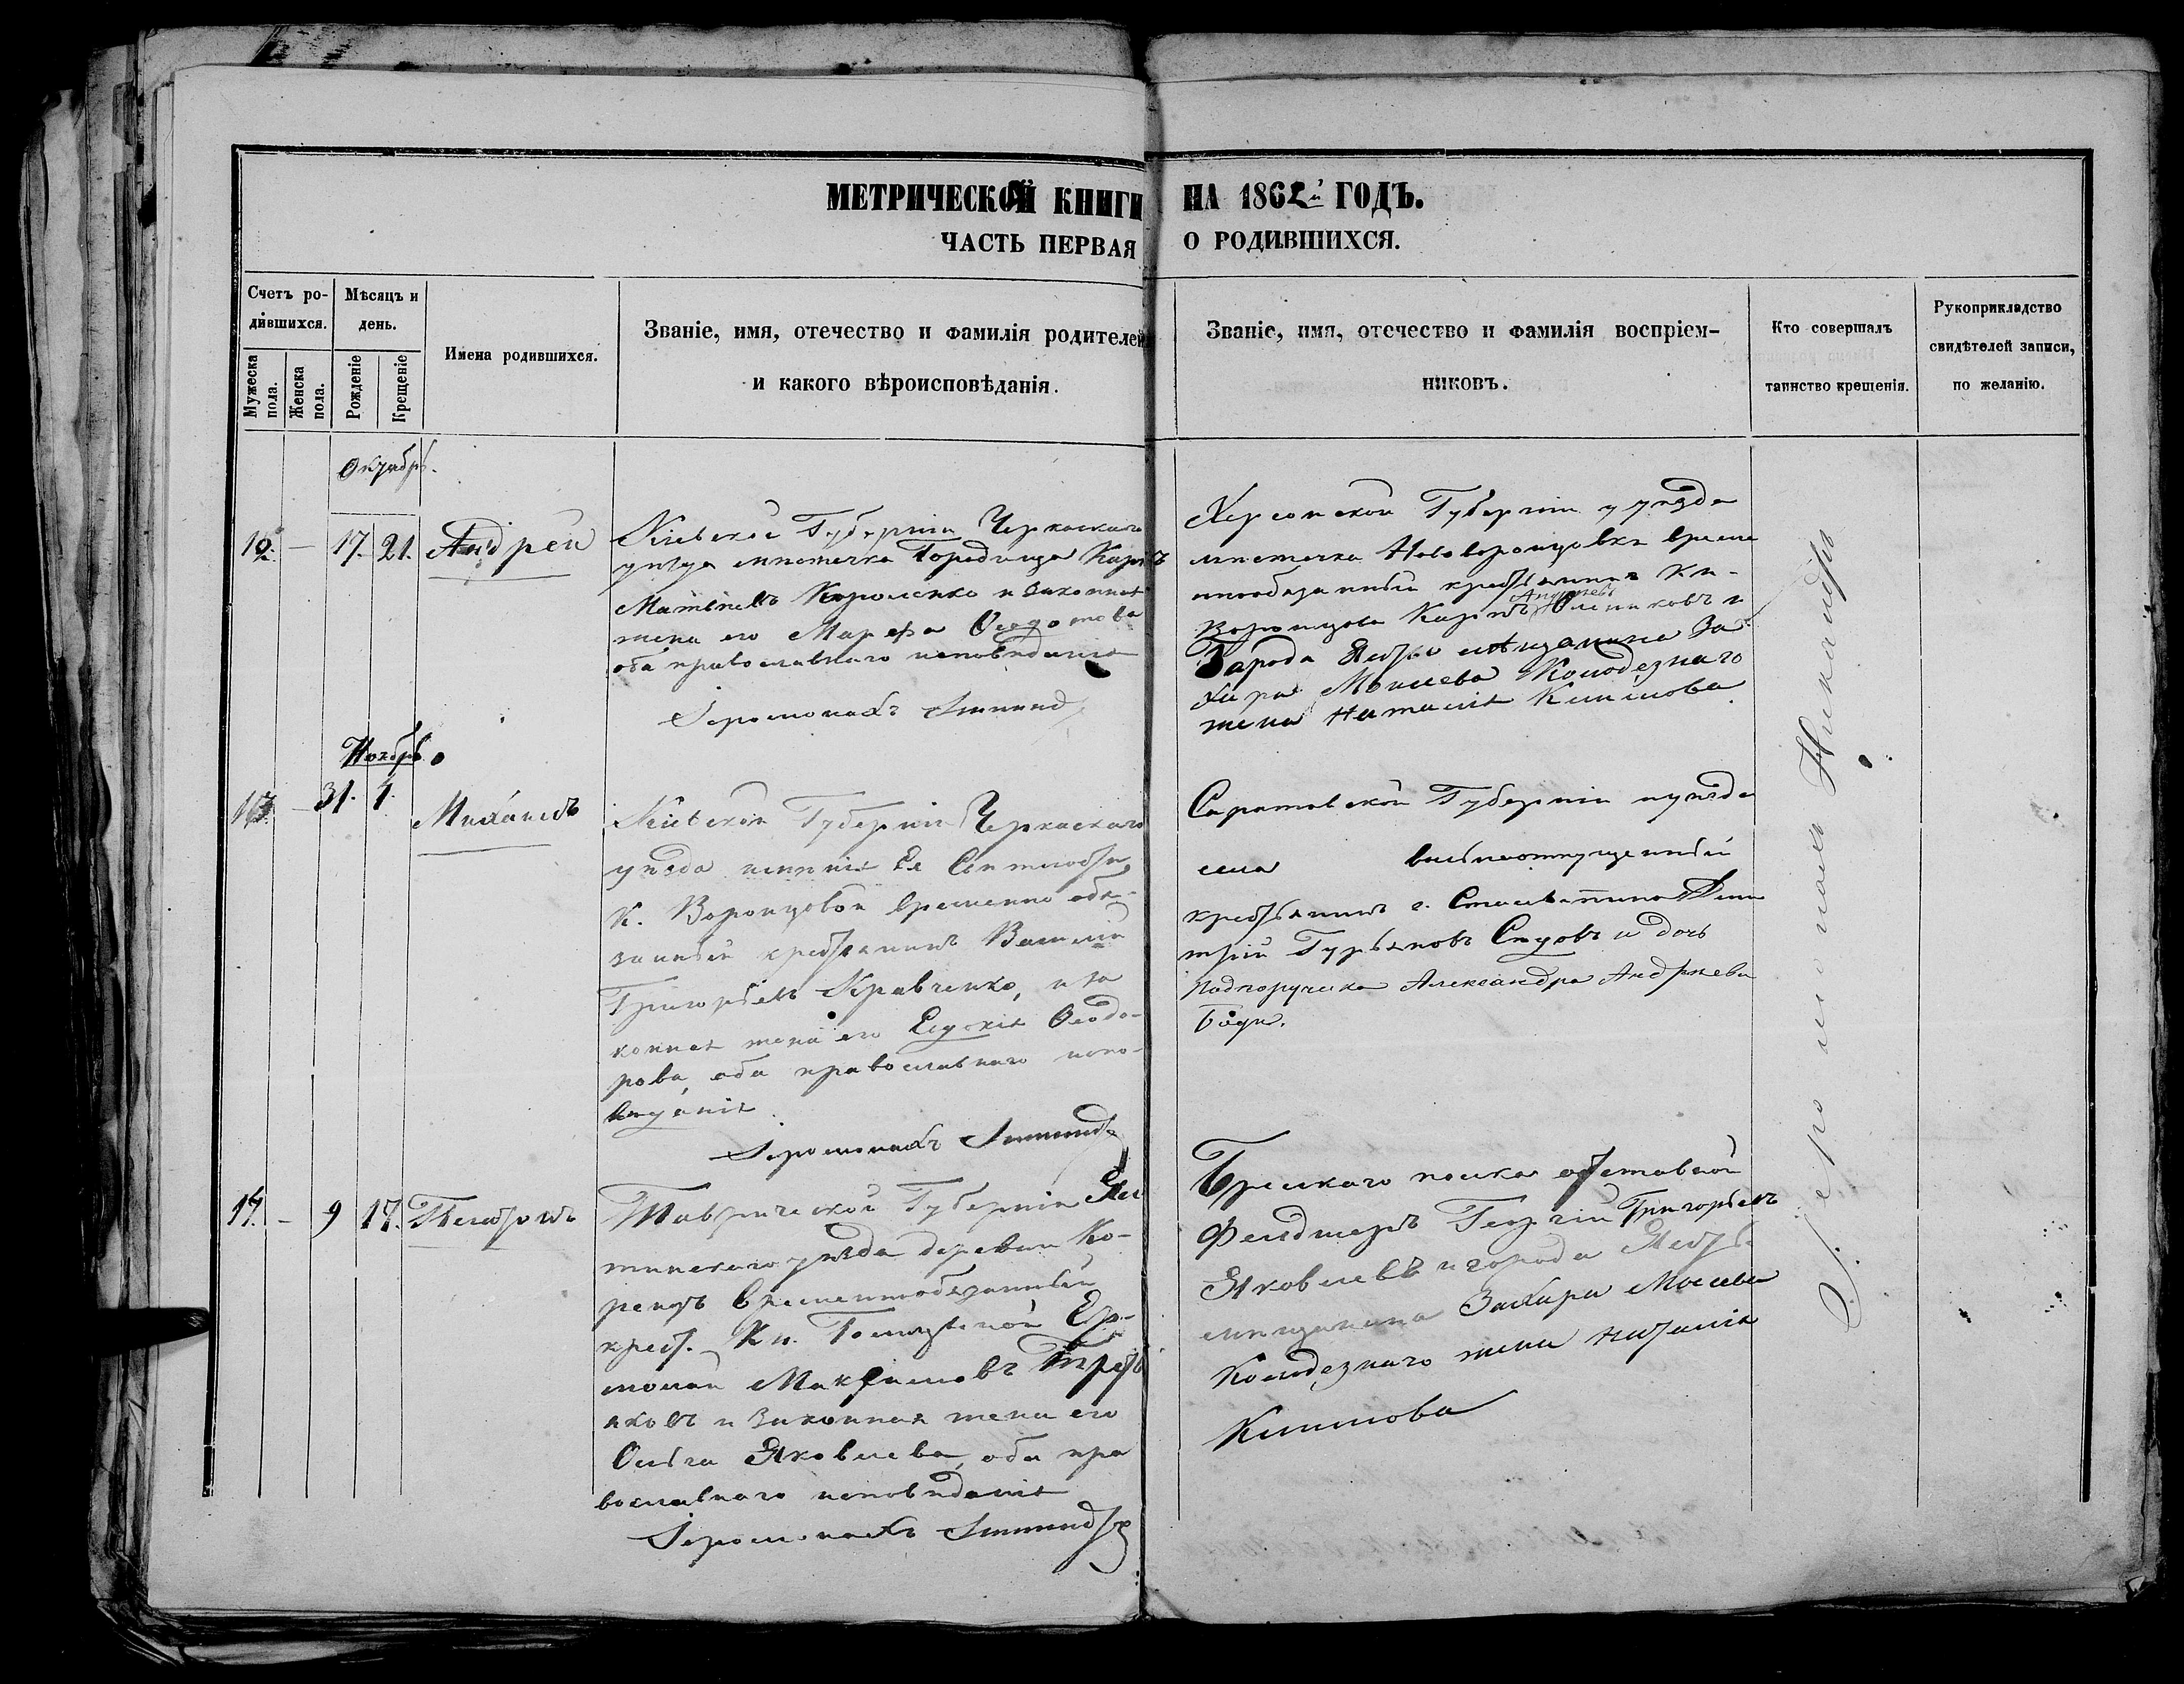 МЕТРИЧЕСКОЙ КНИГИ НА 1862й ГОДЪ.
ЧАСТЬ ПЕРВАЯ О РОДИВШИХСЯ.
Счетъ ро-
дившихся.
Мужеска пола.
Женска пола.
Мѣсяцъ и
день.
Рожденіе
Крещеніе
Имена родившихся.
Званіе, имя, отечество и фамилія родителей
и какого вѣроисповѣданія.
Званіе, имя, отечество и фамилія воспріем-
никовъ.
Кто совершалъ
таинство крещенія.
Рукоприкладство
свидѣтелей записи,
по желанію.
Октябрь.
12. — 17. 21. Андрей
Кіевской Губерніи Черкаскаго
уѣзда мѣстечка Городища Карпъ
Матвѣевъ Короленко и законная
жена его Марѳа Ѳедотова
оба православнаго исповѣданія
Іеромонахъ
Херсонской Губерніи и уѣзда
мѣстечка Нововоронцовки време
ннообязанный крестьянинъ Кн.
Воронцова Карпъ Андреевъ Олениковъ и
Города Ялты мѣщанина За
хара Моисеева Колодезнаго
жена Наталія Климова
Іеромонахъ Никандръ
Ноябрь
13. — 31. 4. Михаилъ
Кіевской Губерніи Черкаскаго
уѣзда имѣнія Ея Свѣтлости
К. Воронцовой временно обя-
занный крестьянинъ Василій
Григорьевъ Кравченко, и за
конная жена его Евдокія Ѳеодо-
рова, оба православнаго испо-
вѣданія
Іеромонахъ
Саратовской Губерніи и уѣзда
села вольноотпущенный
крестьянинъ г. Дими
трій Гурьяновъ и дочь
Подпоручика Александра Андреева
14. — 9 17. Платонъ
Таврической Губерніи Ял
тинскаго уѣзда деревни Ко-
реизъ временнообязанный
крест. Кн. Голицыной Ер-
молай Максимовъ Треть
яковъ и законная жена его
Ольга Яковлева, оба пра
вославнаго исповѣданія
Іеромонахъ
Брестскаго полка отставной
Фельдшеръ Георгій Григорьевъ
Яковлевъ и города Ялты
мѣщанина Захара Моисеева
Колодезнаго жена Наталія
Климова